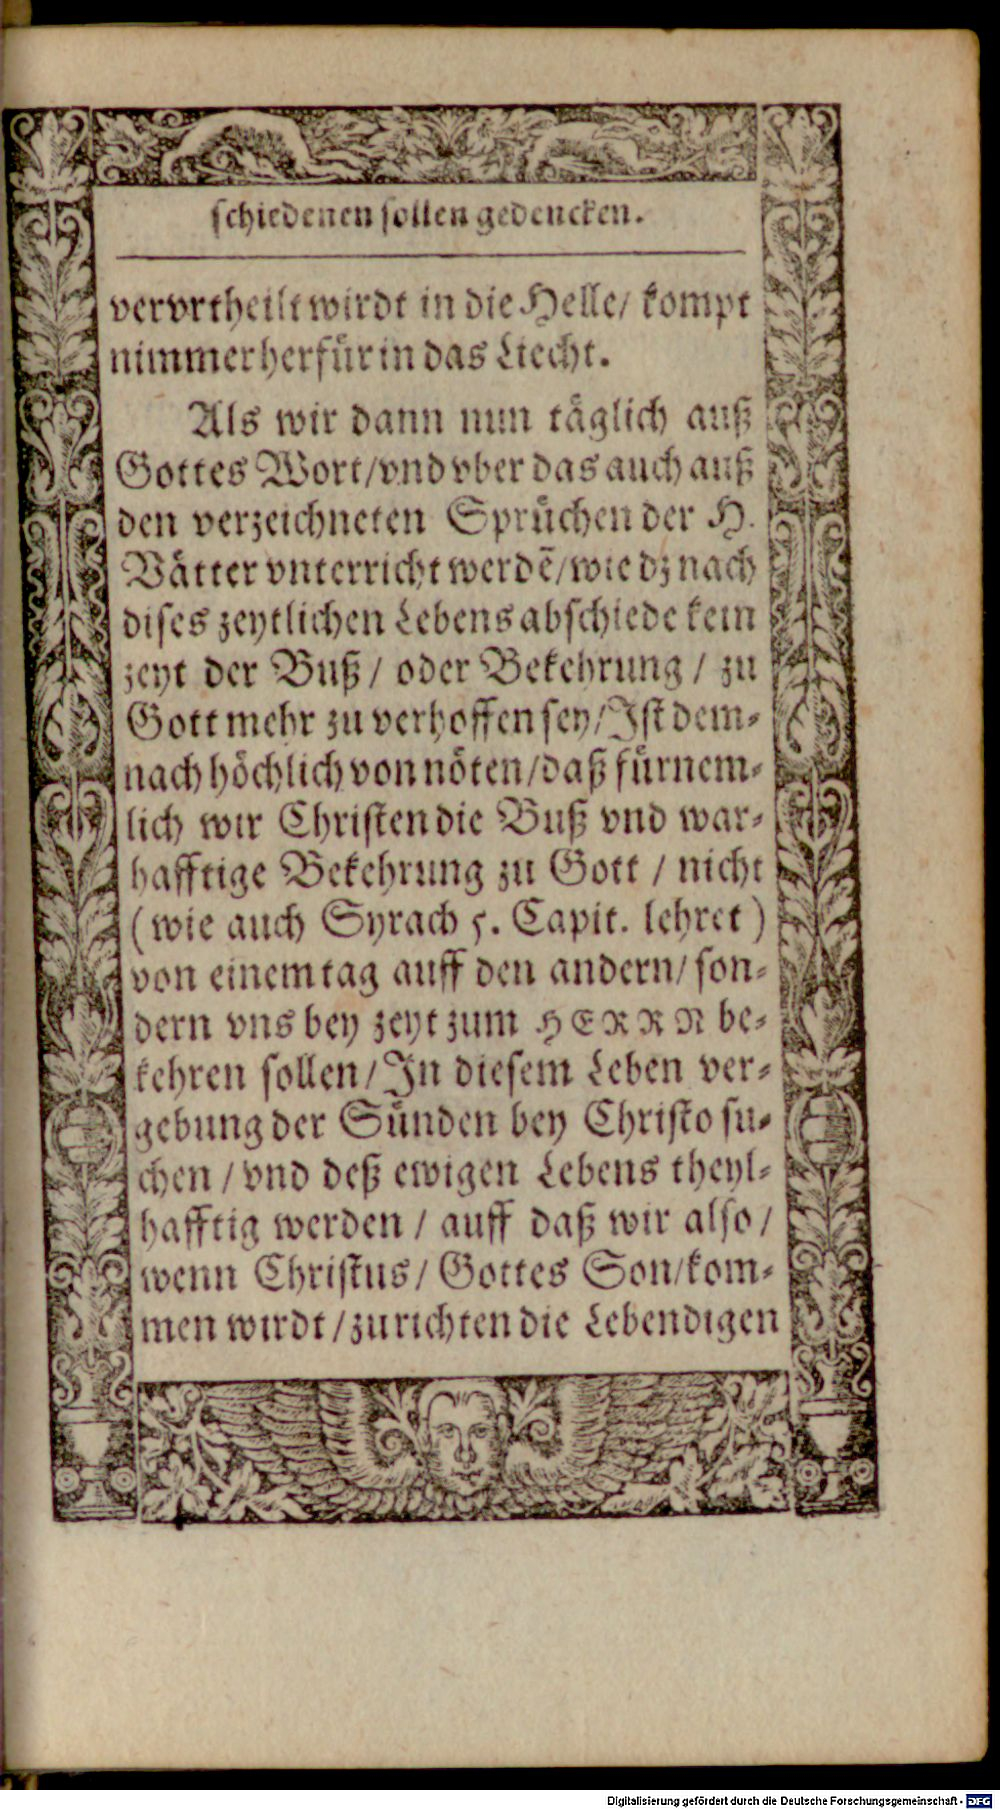 schiedenen sollen gedencken.
vervrtheilt wirdt in die Helle/ kompt
nimmer herfür in das Liecht.
Als wir dann nun täglich auß
Gottes Wort/vnd vber das auch auß
den verzeichneten Sprüchen der H.
Vätter vnterricht werdẽ/wie dz nach
dises zeytlichen Lebens abschiede kein
zeyt der Buß / oder Bekehrung / zu
Gott mehr zu verhoffen sey/Ist dem-
nach höchlich von nöten/daß fürnem-
lich wir Christen die Buß vnd war-
hafftige Bekehrung zu Gott / nicht
(wie auch Syrach 5. Capit. lehret)
von einem tag auff den andern/ son-
dern vns bey zeyt zum HERRN be-
kehren sollen/In diesem Leben ver-
gebung der Sünden bey Christo su-
chen / vnd deß ewigen Lebens theyl-
hafftig werden / auff daß wir also /
wenn Christus/ Gottes Son/kom-
men wirdt /zu richten die Lebendigen
Digitalisierung gefördert durch die Deutsche Forschungsgemeinschaft - DFG